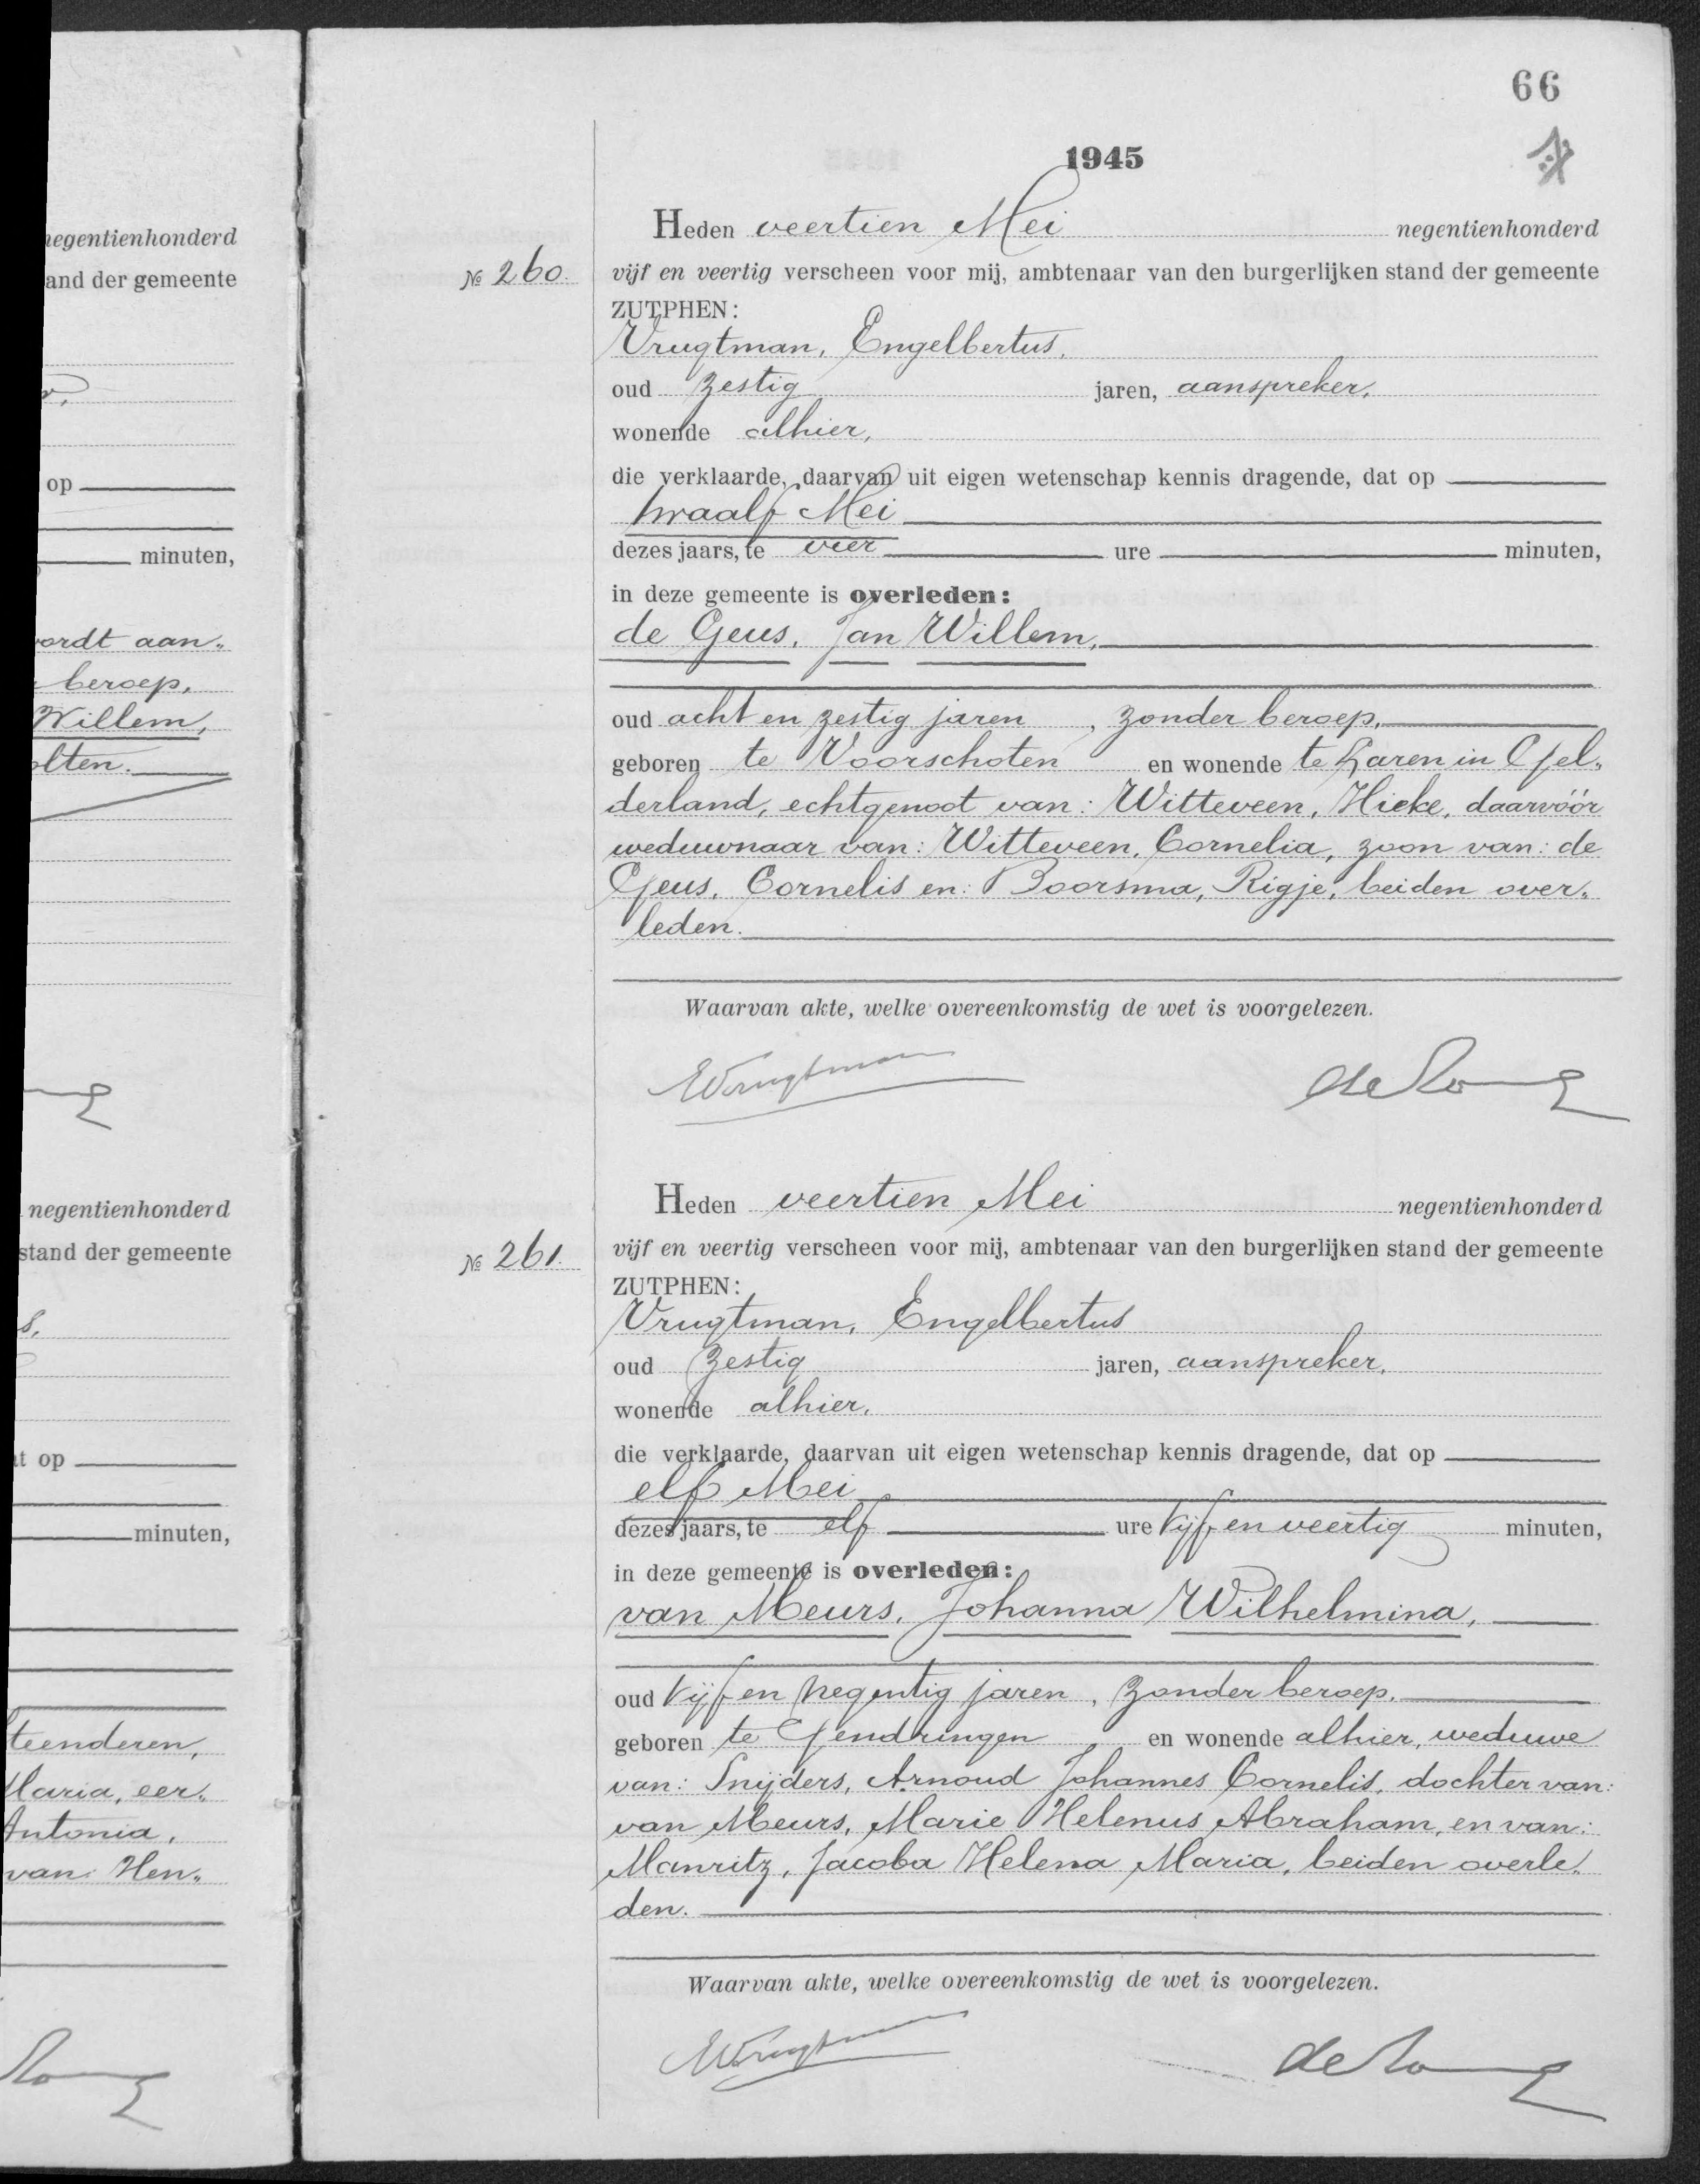 negentienhonderd
and der gemeente
op
minuten,
ordt aan„
beroep,
Willem,
lten.
negentienhonderd
stand der gemeente
s.
t op
minuten,
teenderen,
Maria, eer„
Antonia,
van: Hen„
66
1945
Heden veertien Mei negentienhonderd
№ 260.
vijf en veertig verscheen voor mij, ambtenaar van den burgerlijken stand der gemeente
ZUTPHEN:
Vrugtman, Engelbertus,
oud zestig jaren, aanspreker,
wonende alhier,
die verklaarde, daarvan uit eigen wetenschap kennis dragende, dat op
twaalf Mei
dezes jaars, te vier ure minuten,
in deze gemeente is overleden:
de Geus, Jan Willem,
oud acht en zestig jaren, zonder beroep,
geboren te Voorschoten en wonende te Laren in Gel„
derland, echtgenoot van: Witteveen, Hieke, daarvóór
weduwnaar van: Witteveen, Cornelia, zoon van: de
Geus, Cornelis en: Boorsma, Rigje, beiden over„
leden.
Waarvan akte, welke overeenkomstig de wet is voorgelezen.
EVrugtman
Heden veertien Mei negentienhonderd
№ 261.
vijf en veertig verscheen voor mij, ambtenaar van den burgerlijken stand der gemeente
ZUTPHEN:
Vrugtman, Engelbertus
oud zestig jaren, aanspreker,
wonende alhier,
die verklaarde, daarvan uit eigen wetenschap kennis dragende, dat op
elf Mei
dezes jaars, te elf ure vijf en veertig minuten,
in deze gemeente is overleden:
van Meurs, Johanna Wilhelmina,
oud vijf en negentig jaren, zonder beroep,
geboren te Gendringen en wonende alhier, weduwe
van: Snijders, Arnoud Johannes Cornelis, dochter van:
van Meurs, Marie Helenus Abraham, en van:
Manritz, Jacoba Helena Maria, beiden overle„
den.
Waarvan akte, welke overeenkomstig de wet is voorgelezen.
EVrugtman